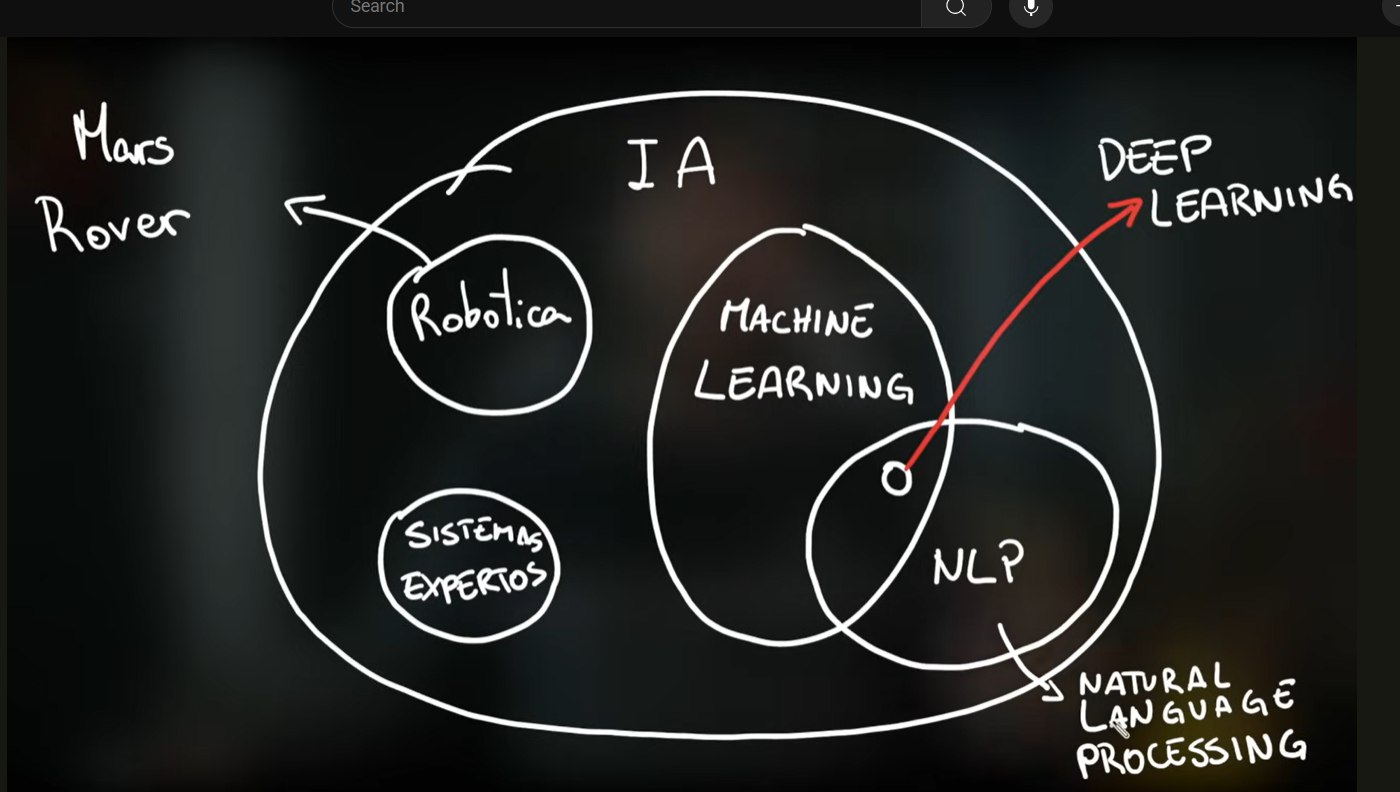 Search
Mars
Rover
IA
DEEP
LEARNING
Robótica
MACHINE
LEARNING
SISTEMAS
EXPERTOS
NLP
NATURAL
LANGUAGE
PROCESSING